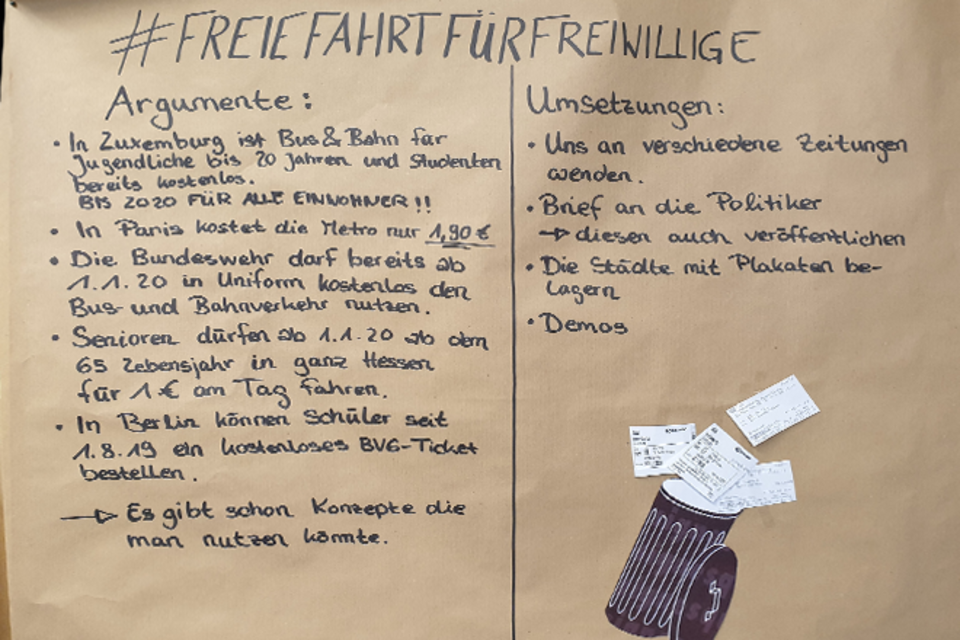 #FREIEFAHRTFÜRFREIWILLIGE
Argumente:
• In Luxemburg ist Bus & Bahn für
Jugendliche bis 20 Jahren und Studenten
bereits kostenlos.
BIS 2020 FÜR ALLE EINWOHNER!!
• In Paris kostet die Metro nur 1,90 €
• Die Bundeswehr darf bereits ab
1.1.20 in Uniform kostenlos den
Bus- und Bahnverkehr nutzen.
• Senioren dürfen ab 1.1.20 ab dem
65 Lebensjahr in ganz Hessen
für 1 € am Tag fahren.
• In Berlin können Schüler seit
1.8.19 ein kostenloses BVG-Ticket
bestellen.
→ Es gibt schon Konzepte die
man nutzen könnte.
Umsetzungen:
• Uns an verschiedene Zeitungen
wenden.
• Brief an die Politiker
→ diesen auch veröffentlichen
• Die Städte mit Plakaten be-
lagern
• Demos